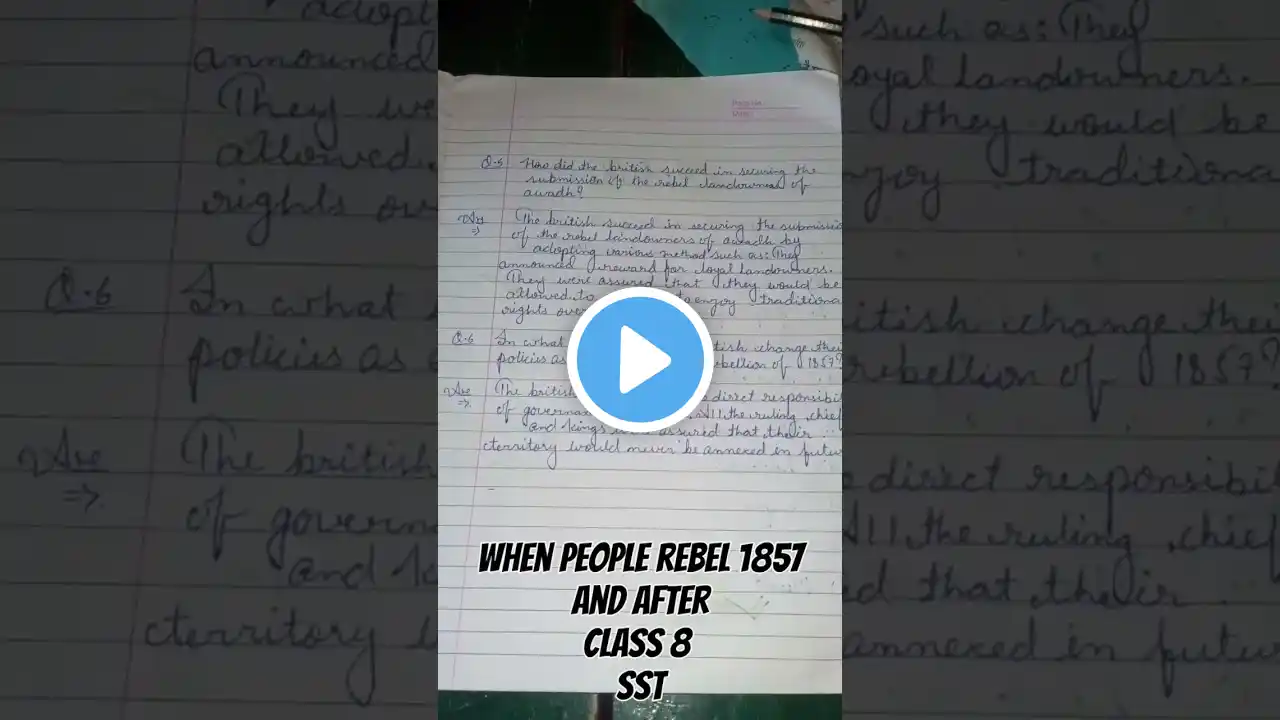 Q.5 How did the british succeed in securing the
submission of the rebel landowners of
awadh?
Ans The british succeed in securing the submissio
of the rebel landowners of awadh by
adopting various method such as: They
announced reward for loyal landowners.
They were assured that they would be
allowed to to enjoy traditiona
rights over
Q.6 In what tish change thei
policies as ebellion of 1857?
Ans The british direct responsibi
of govern All the ruling chief
and kings assured that their
territory would never be annexed in futur
WHEN PEOPLE REBEL 1857
AND AFTER
CLASS 8
SST